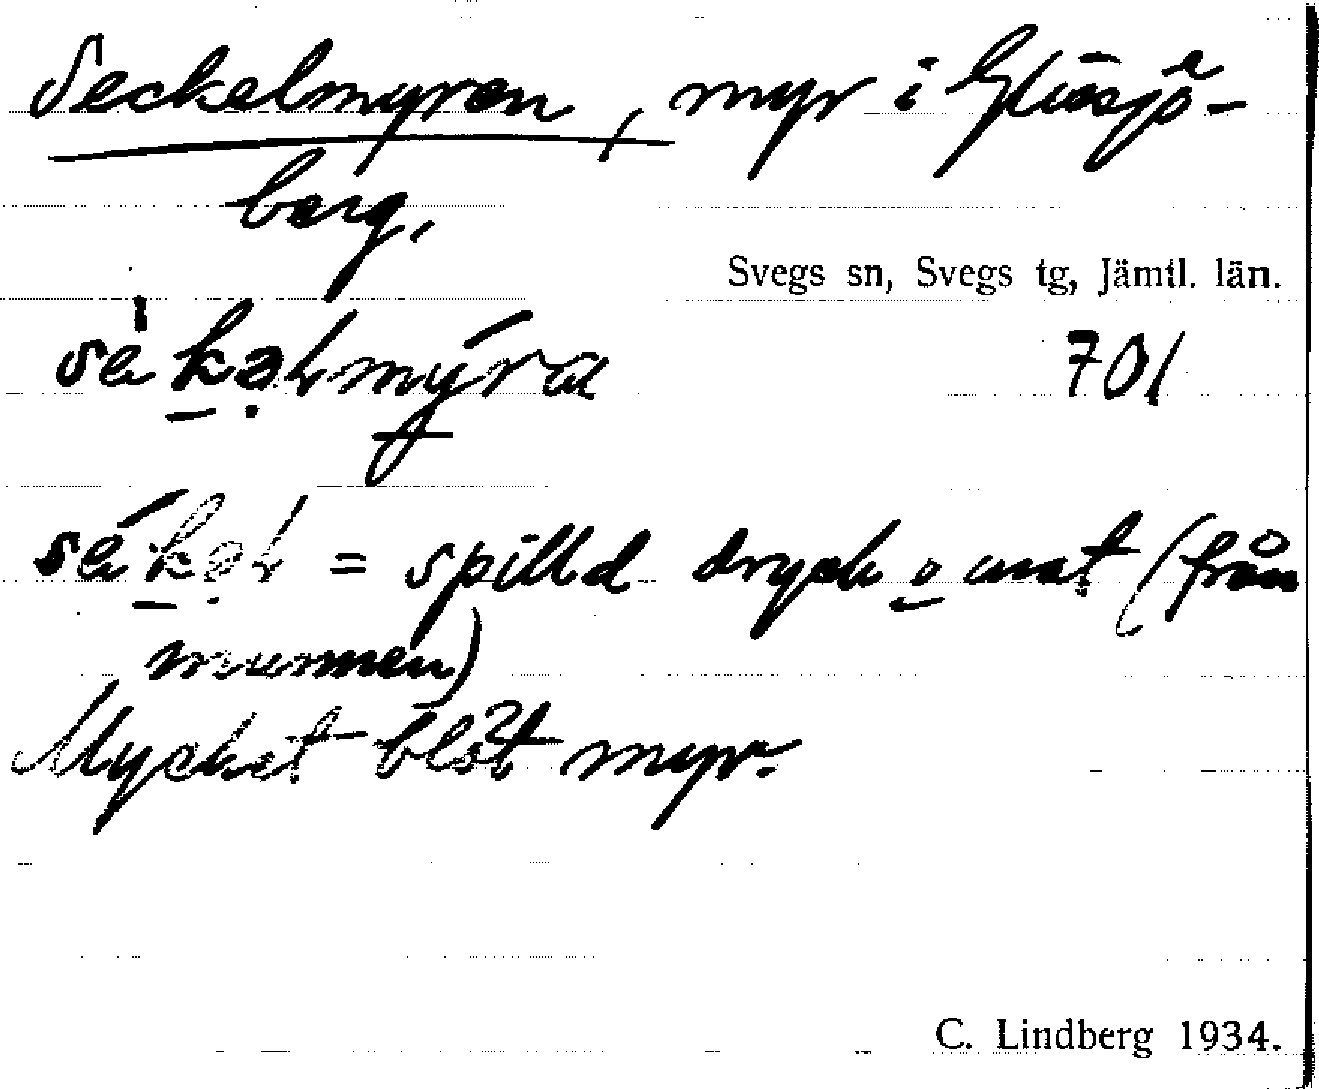 Seckelmyren, myr i Glissjö-
berg,
Svegs sn, Svegs tg, Jämtl. län.
701
= spilld dryck o mat (från
munnen)
Mycket blöt myr.
C. Lindberg 1934.